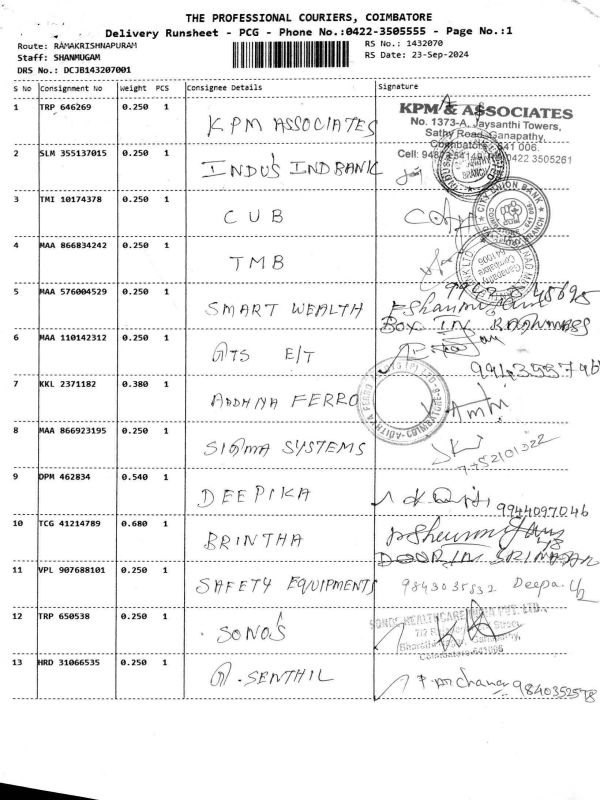 THE PROFESSIONAL COURIERS, COIMBATORE
Delivery Runsheet - PCG - Phone No.:0422-3505555 - Page No.:1
Route: RAMAKRISHNAPURAM
Staff: SHANMUGAM
DRS No.: DCJB143207001
RS No.: 1432070
RS Date: 23-Sep-2024
S No Consignment No Weight PCS Consignee Details Signature
1 TRP 646269 0.250 1 KPM ASSOCIATES
KPM & ASSOCIATES
No. 1373-A, Jaysanthi Towers,
Sathy Road, Ganapathy,
Coimbatore 641 006.
Cell: 0422 3505261
2 SLM 355137015 0.250 1 INDUS IND BANK
3 TMI 10174378 0.250 1 CUB
CITY UNION BANK
4 MAA 866834242 0.250 1 TMB
Ganapathy
Coimbatore
641006
5 MAA 576004529 0.250 1 SMART WEALTH
BOX IN
6 MAA 110142312 0.250 1 GTS E/T
7 KKL 2371182 0.380 1 ADDHYA FERRO
ADITHYA FERRO
COIMBATORE
8 MAA 866923195 0.250 1 SIGMA SYSTEMS
9 DPM 462834 0.540 1 DEEPIKA
9944097046
10 TCG 41214789 0.680 1 BRINTHA
11 VPL 907688101 0.250 1 SAFETY EQUIPMENTS 9843035832 Deepa.
12 TRP 650538 0.250 1 SONO'S
SONOS HEALTHCARE INDIA PVT. LTD.,
Street,
Ganapathy,
Coimbatore 641006
13 HRD 31066535 0.250 1 G. SENTHIL
9840352598